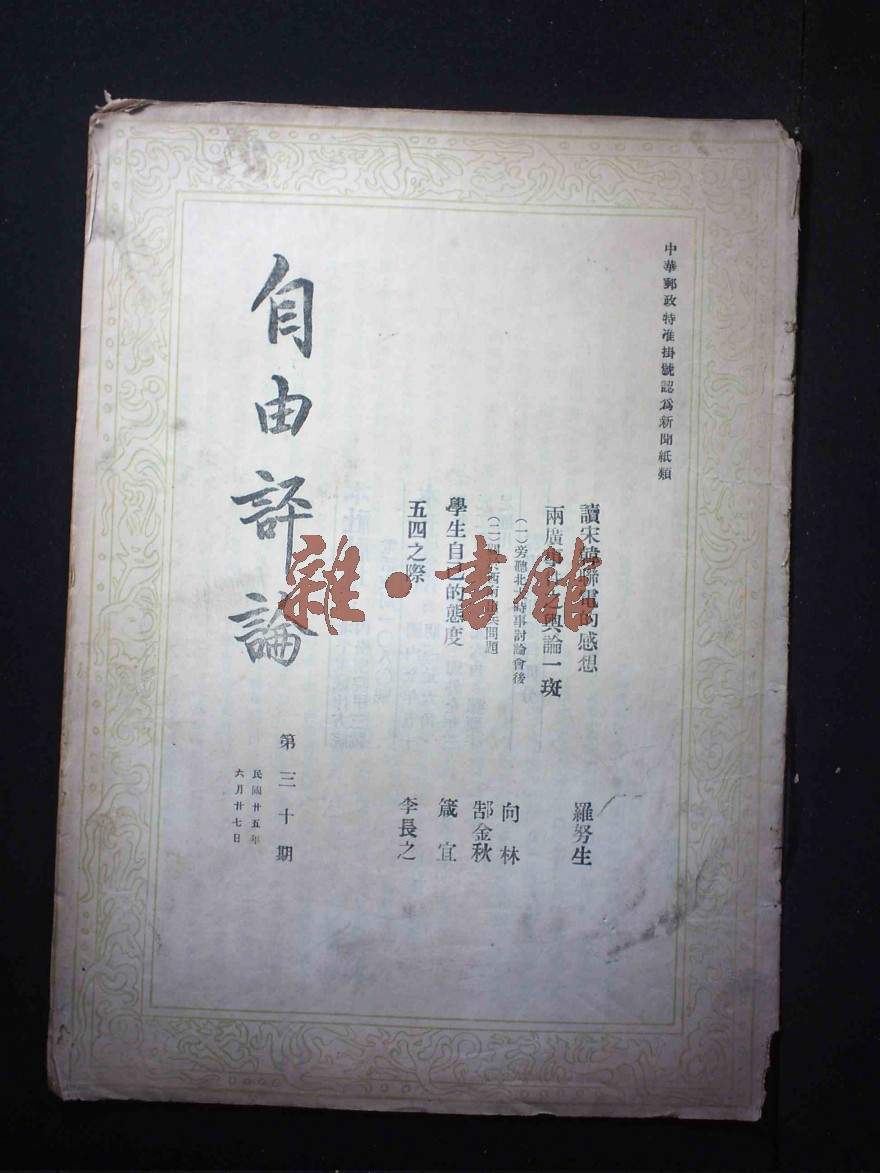 中華郵政特准掛號認爲新聞紙類
讀宋韓聯電的感想
羅努生
兩廣事件之輿論一斑
(一)旁聽北大時事討論會後
向林
(二)關於西南出兵問題
郜金秋
學生自己的態度
箴宜
五四之際
李長之
自由評論
第三十期
民國廿五年
六月廿七日
雜·書館